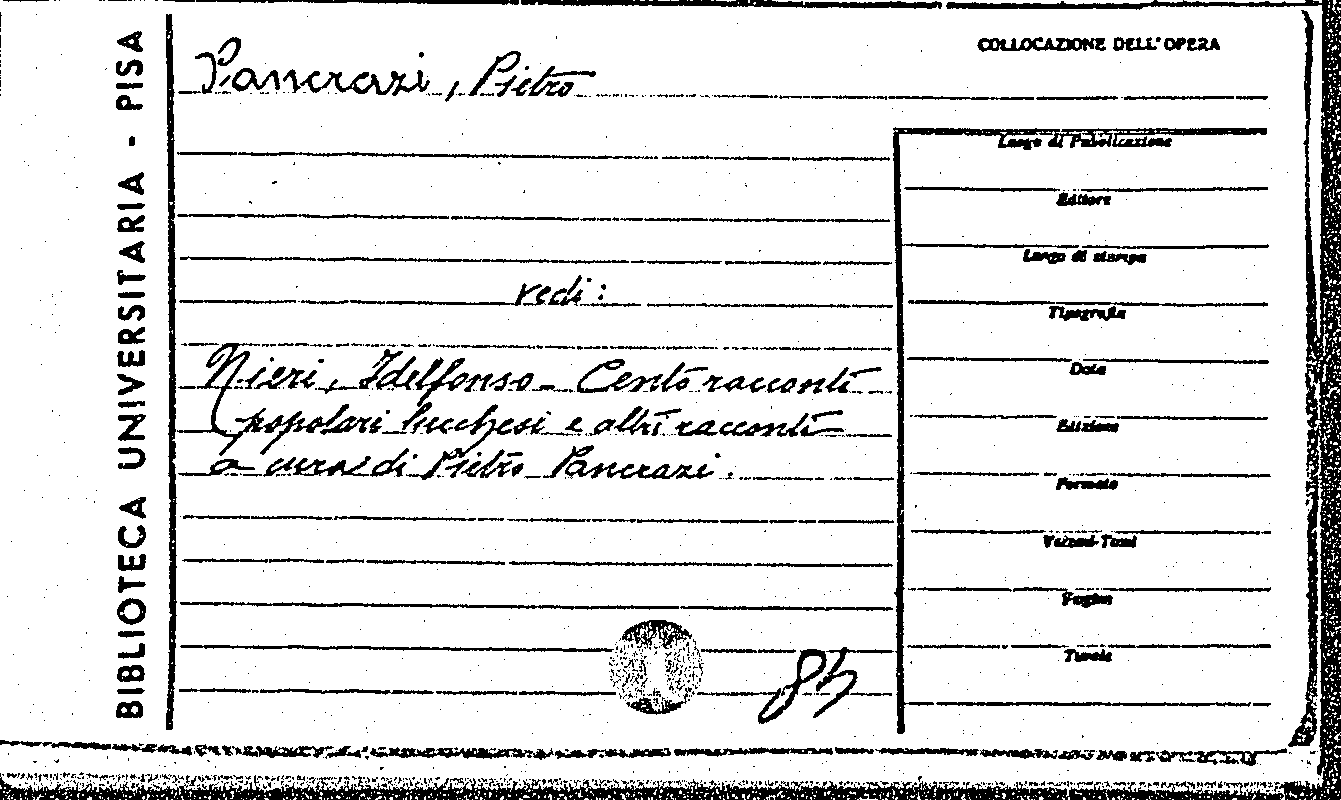 BIBLIOTECA UNIVERSITARIA - PISA
Pancrazi, Pietro
COLLOCAZIONE DELL'OPERA
Luogo di Pubblicazione
Editore
Luogo di stampa
Tipografia
Data
Edizione
Formato
Volumi-Tomi
Pagine
Tavole
vedi:
Nieri, Idelfonso - Cento racconti
popolari lucchesi e altri racconti
a cura di Pietro Pancrazi.